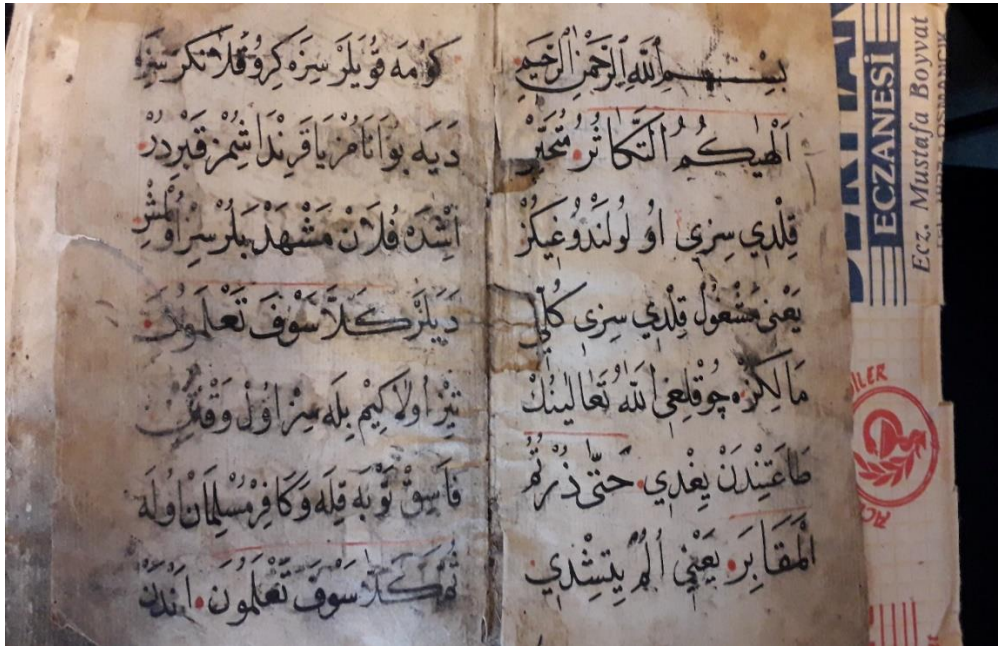 بِسْمِ اللّٰهِ الرَّحْمٰنِ الرَّحِيمِ
اَلْهٰيكُمُ التَّكَاثُرُ مُتَحَيِّرْ
قِلْدِي سِزِي اُو لُولَنْدُوغِيكُزْ
يَعْنِى مَشْغُولْ قِلْدِي سِزِى كُلِّي
مَالِكِزِه چُوقْلِغِى اللّٰهُ تَعَالٰينِكْ
طَاعَتِنْدَنْ يِغْدِي حَتّٰى زُرْتُمُ
الْمَقَابِرَ يَعْنِي اُلُمْ يِتِشْدِي
كَوُمَه قُويَلَرْ سِزَه كِرُو قَلَا
دِيَه بُو اَنَامُزْ يَا قَرِنْدَاشُمُز قَبْرِدُرْ
اِشْدَه فُلَانْ مَشْهَدْ بَلُرْسِزْ اُولْمُشْ
دِيَلَرْ كَلَّا سَوْفَ تَعْلَمُونَ
تِيزْ اُولَا كِيمْ بِلَه سِزْ اُولْ وَقْتِنْ
فَاسِقْ تَوْبَه قِلَه وَكَافِرْ مُسْلِمَانْ اُولَه
ثُمَّ كَلَّا سَوْفَ تَعْلَمُونَ اَنْدَنْ
ECZANESİ
Ecz. Mustafa Boyvat
OSMANCIK